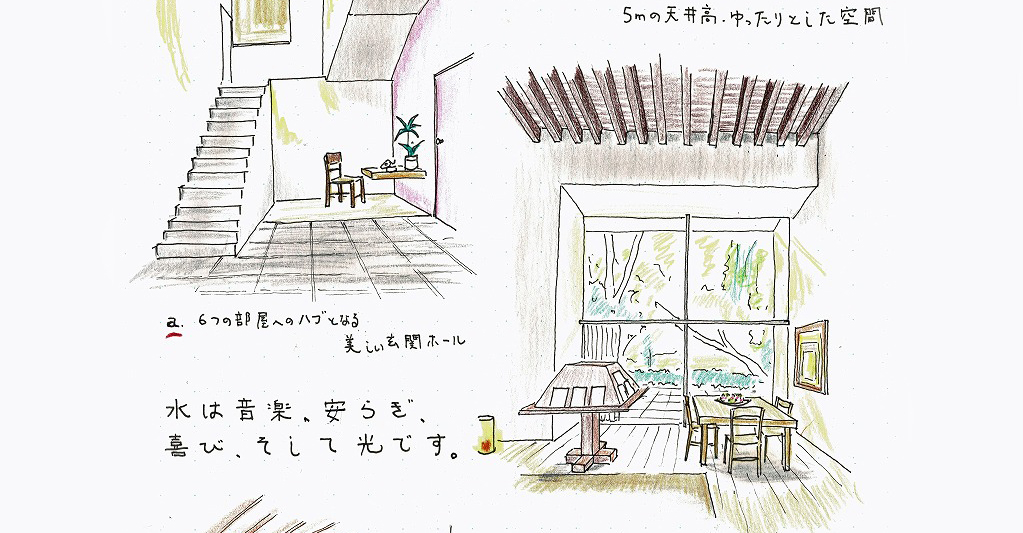 5mの天井高.ゆったりとした空間
a. 6つの部屋へのハブとなる
美しい玄関ホール
水は音楽。安らぎ、
喜び、そして光です。